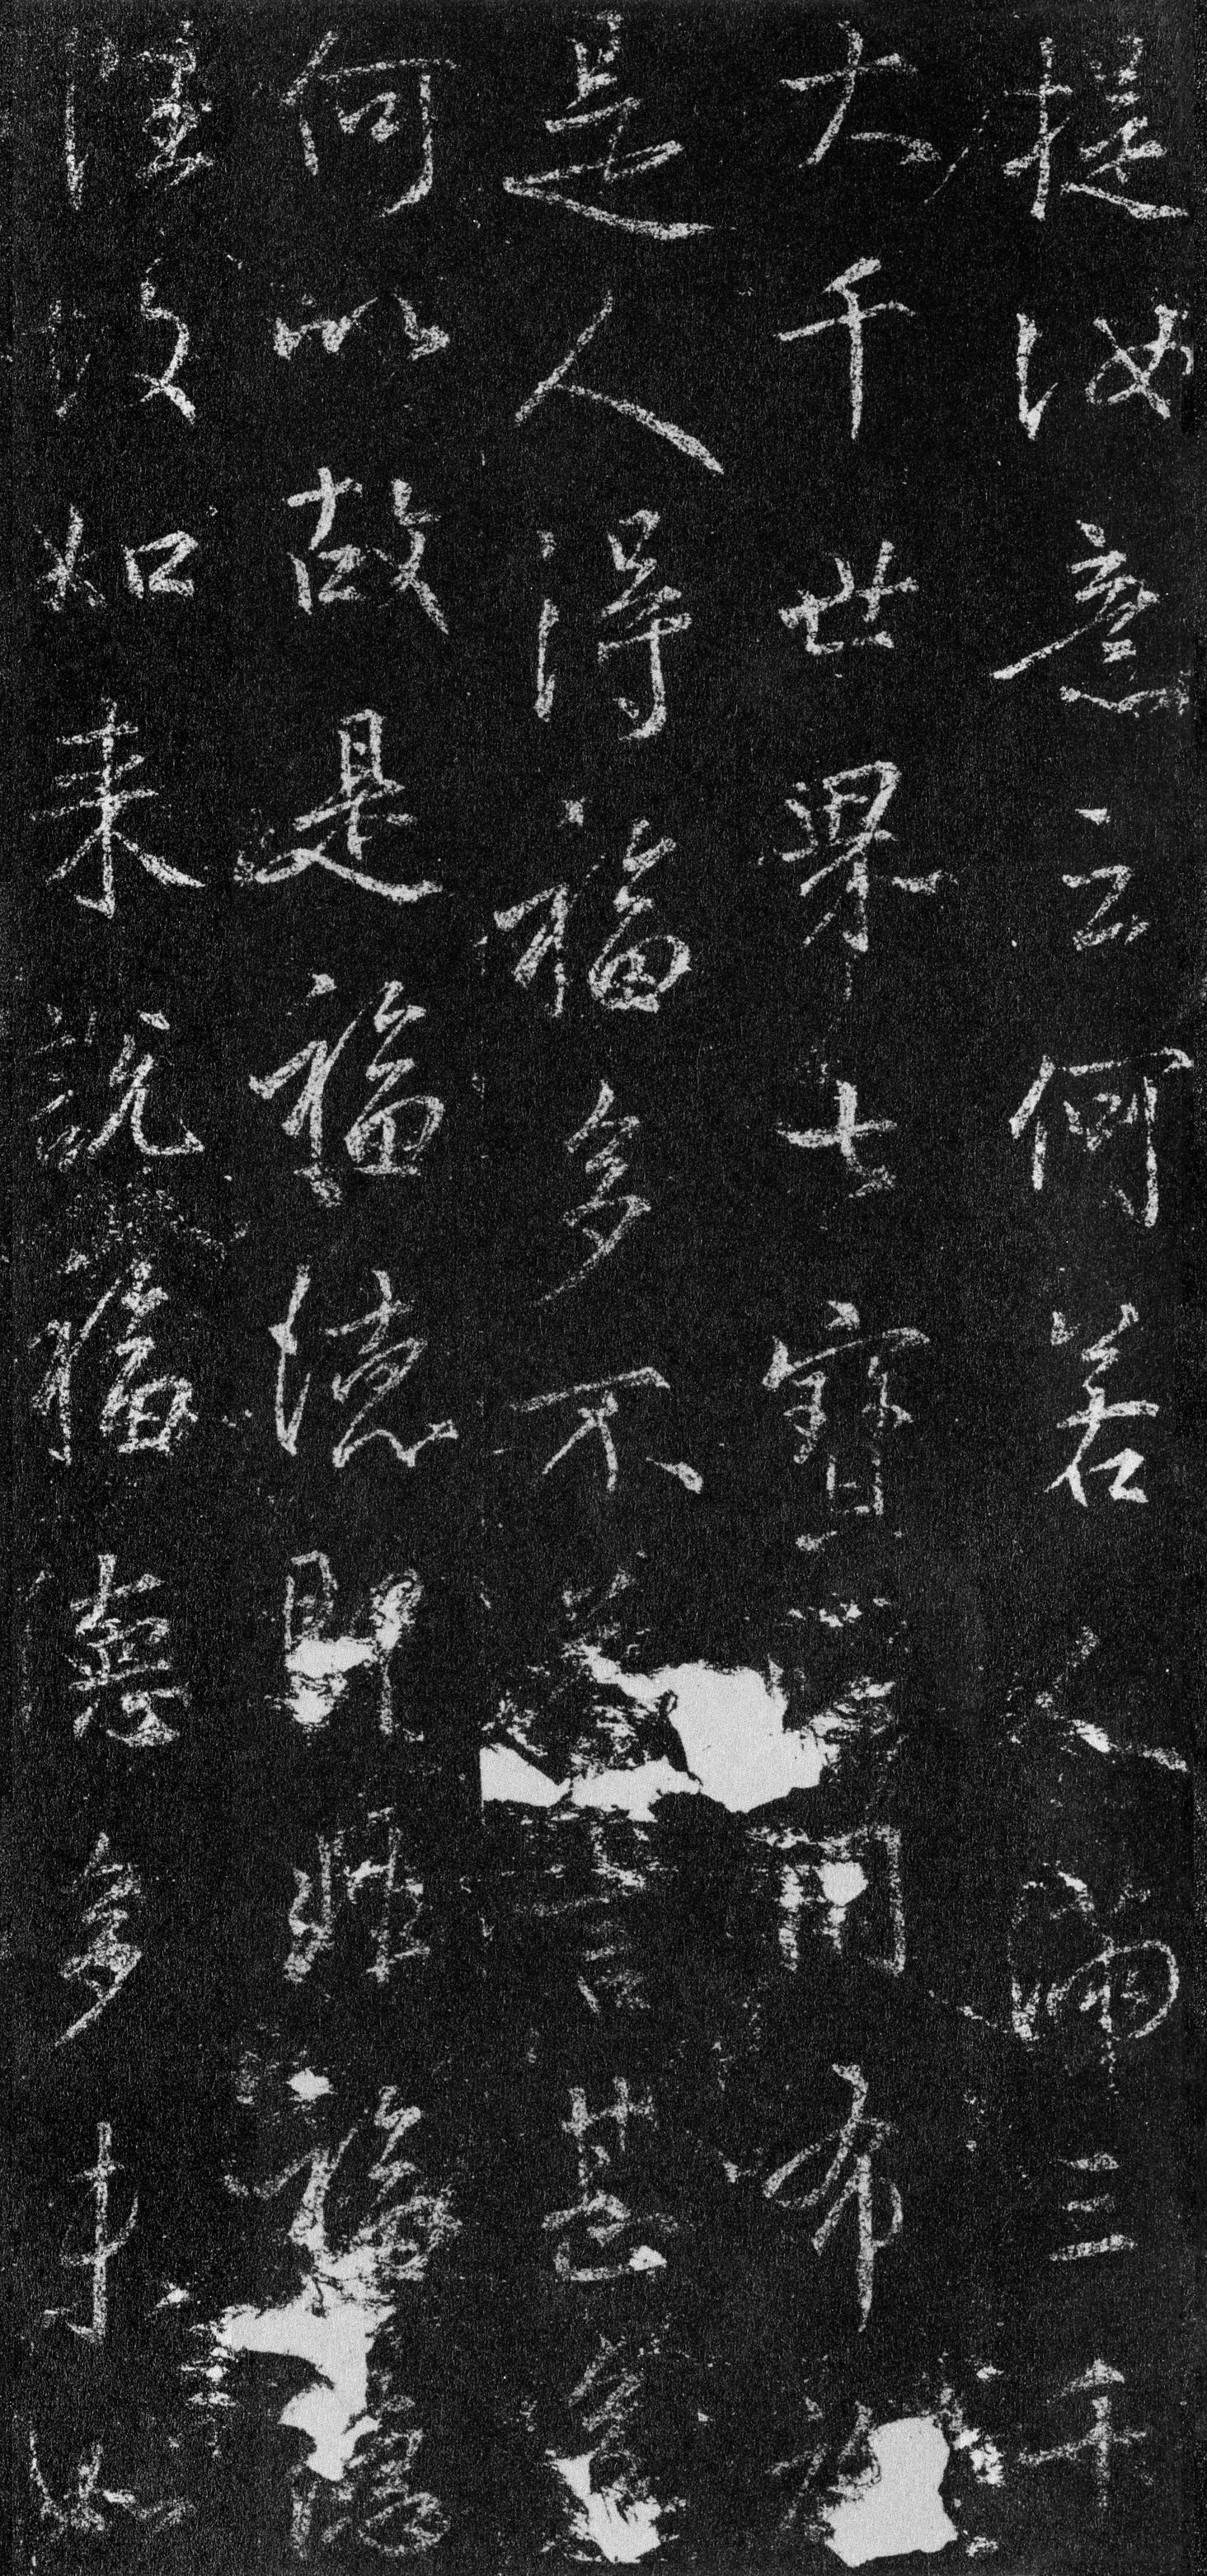 提汝意云何若人滿三千
大千世界七寶用布施
是人得福多不言甚多
何以故是福德即非福德
性故如來說福德多